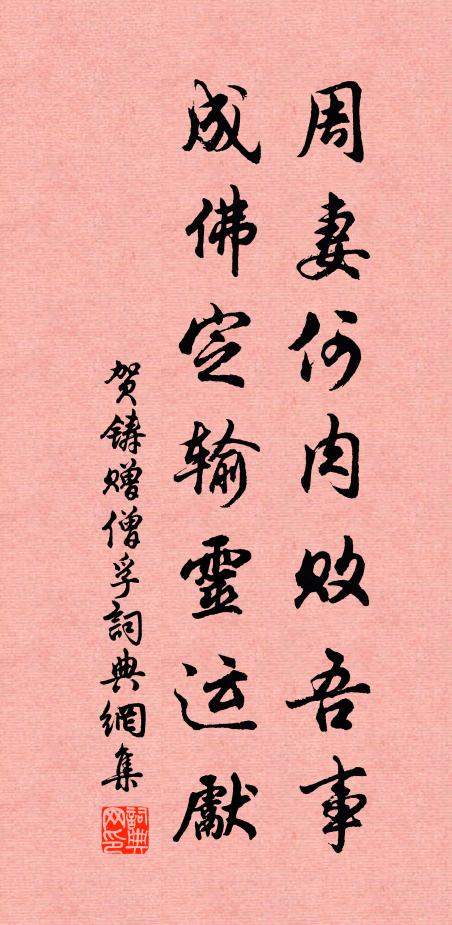 周妻何肉败吾事
成佛定输靈运獻
贺铸赠僧孚詞典網集
詞典网印